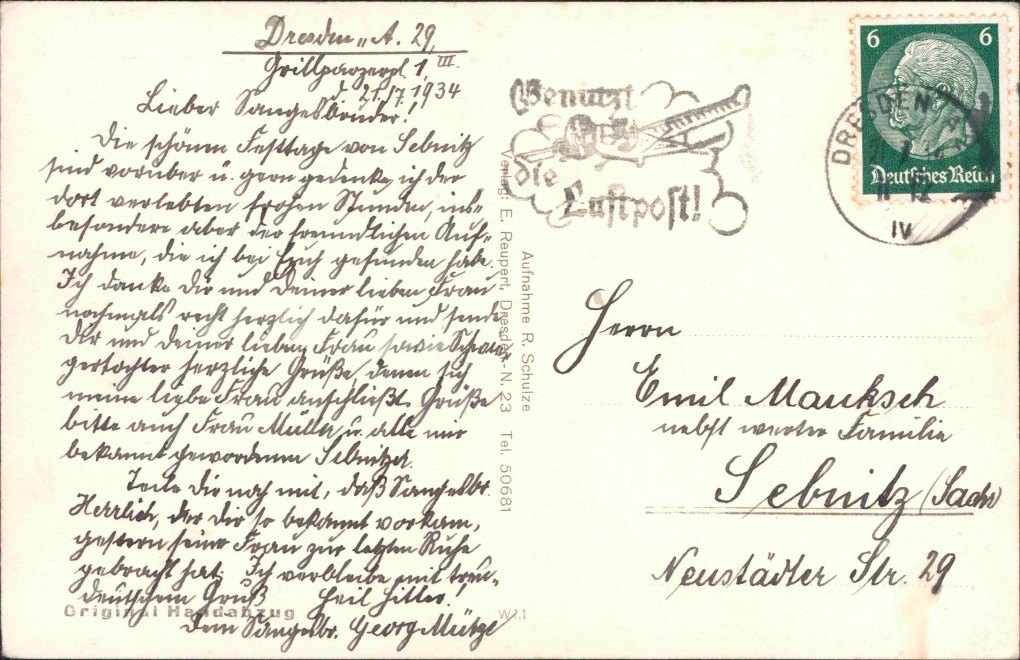 Dresden-A. 29,
Grillparzerpl. 1, III.
d. 21.7.1934
Lieber Sangesbruder!
Die schönen Festtage von Sebnitz
sind vorüber u. gern gedenke ich der
dort verlebten frohen Stunden, ins-
besondere aber der freundlichen Auf-
nahme, die ich bei Euch gefunden habe.
Ich danke Dir und Deiner lieben Frau
nochmals recht herzlich dafür und sende
Dir und Deiner lieben Frau sowie Schwie-
gertochter herzliche Grüße, denen sich
meine liebe Frau anschließt. Grüße
bitte auch Frau Müller u. alle mir
bekannt gewordenen Sebnitzer.
Teile Dir noch mit, daß Sangesbr.
Herrlich, der Dir so bekannt vorkam,
gestern seine Frau zur letzten Ruhe
gebracht hat. Ich verbleibe mit treu-
deutschem Gruß Heil Hitler!
Dein Sangesbr. Georg Mütze
Original Handabzug
W 1.1
Verlag: E. Reupert, Dresden-N. 23 Tel. 50681
Aufnahme R. Schulze
Benutzt
die
Luftpost!
6 6
Deutsches Reich
DRESDEN
IV
Herrn
Emil Mauksch
nebst werter Familie
Sebnitz (Sachs)
Neustädter Str. 29